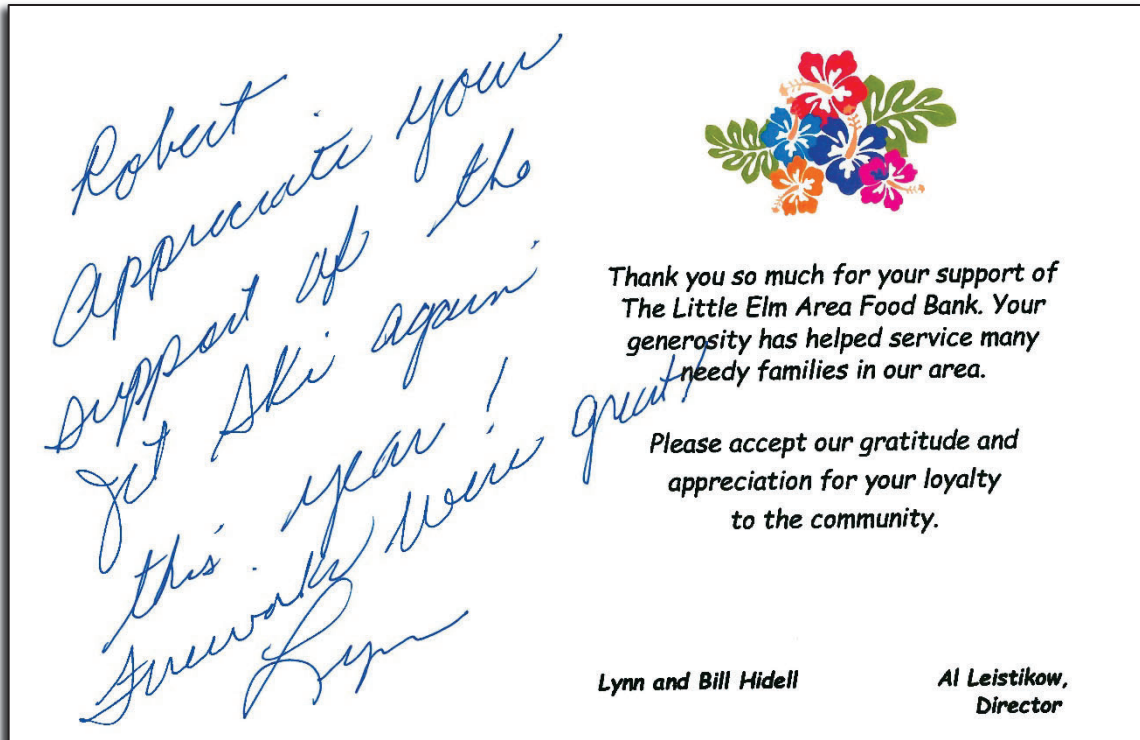 Robert
appreciate your
support of the
Jet Ski again
this year!
Fireworks were great!
Lynn
Thank you so much for your support of
The Little Elm Area Food Bank. Your
generosity has helped service many
needy families in our area.
Please accept our gratitude and
appreciation for your loyalty
to the community.
Lynn and Bill Hidell
Al Leistikow,
Director